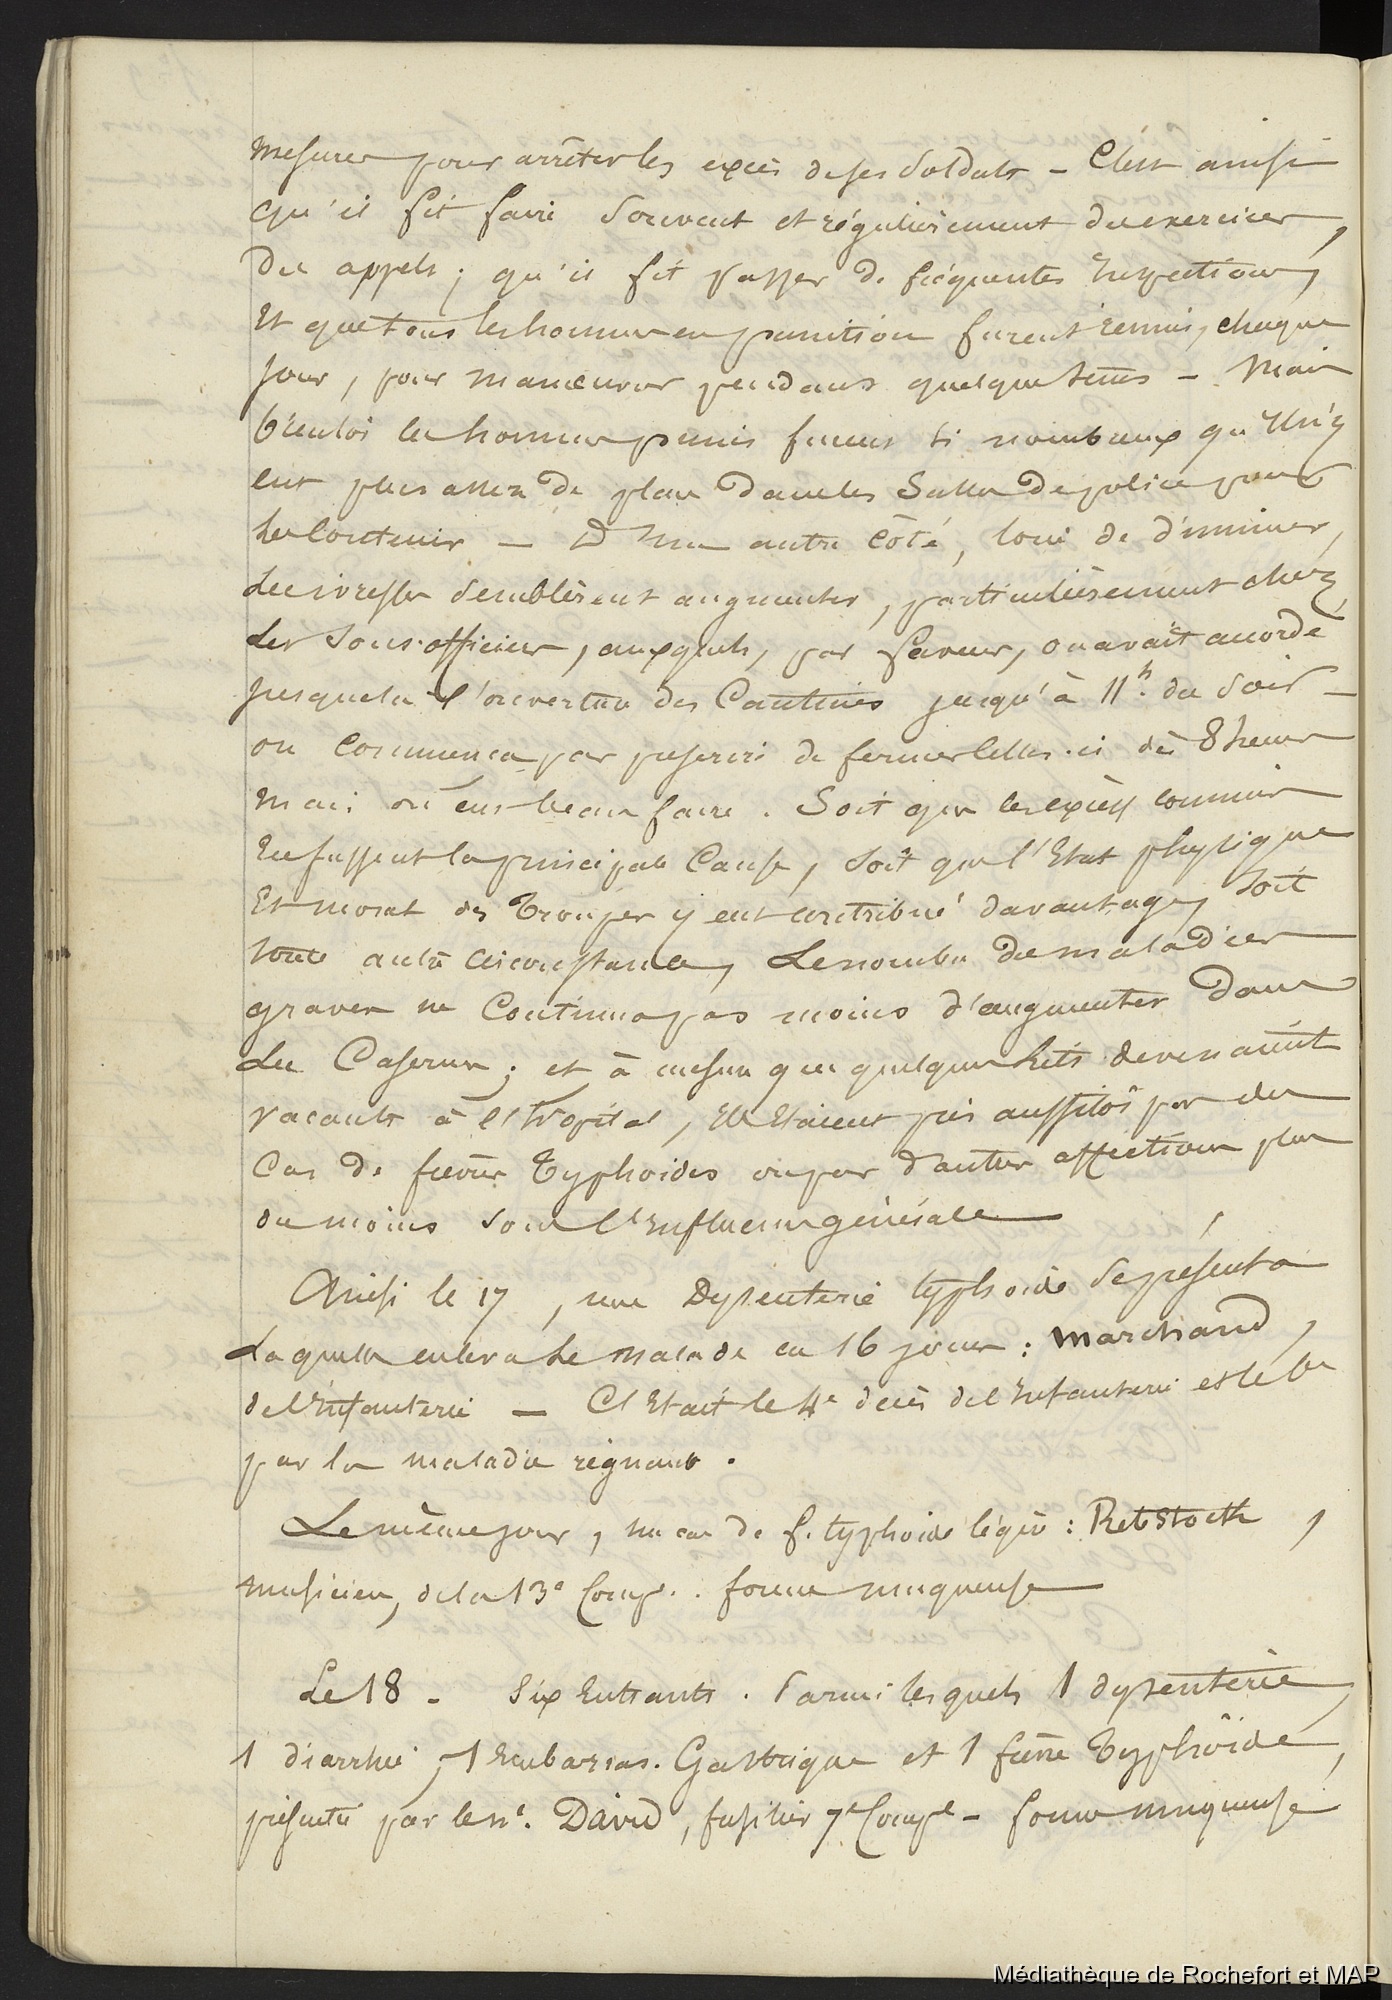 mesures pour arrêter les excès de ses soldats – C'est ainsi
qu'il fit faire souvent et régulièrement des exercices,
des appels ; qu'il fit passer de fréquentes Inspections,
Et que tous les hommes en punition furent réunis, chaque
jour, pour manœuvrer pendant quelque temps – Mais
bientôt les hommes punis furent si nombreux qu'Il n'y
eut plus assez de place dans les Salles de police pour
les Contenir – D'Une autre côté, loin de diminuer,
Les ivresses semblèrent augmenter, particulièrement chez
Les Sous-officiers, auxquels, par faveur, on avait accordé
jusques là l'ouverture des Cantines jusqu'à 11h. du Soir –
on Commença par prescrire de fermer Celles-ci dès 8 heures
Mais on eut beau faire. Soit que les excès commis
En fussent la principale Cause, soit que l'Etat physique
Et moral des Troupes y eut contribué davantage, soit
toute autre circonstance, Le nombre de maladies
graves ne Continua pas moins d'augmenter Dans
Les Casernes ; et à mesure que quelques lits devenaient
vacants à l'hôpital, Ils Etaient pris aussitôt par des
Cas de fièvres Typhoïdes ou par d'autres affections plus
ou moins sous l'Influence générale
Ainsi le 17, une Dysenterie typhoïde se présenta
Laquelle enleva Le malade en 16 jours : Marchand,
de l'Infanterie – C'Etait le 4e décès de l'Infanterie et le
par la maladie régnante.
Le même jour, un cas de f. typhoïde légère : Rebstoctk,
musicien, de la 13e Compe. forme muqueuse
Le 18 – Six Entrants. Parmi lesquels 1 dysenterie,
1 diarrhée, 1 Embarras. Gastrique et 1 fièvre Typhoïde,
présentée par le né. David, fusilier 7e Compe – forme muqueuse
Médiathèque de Rochefort et MAP